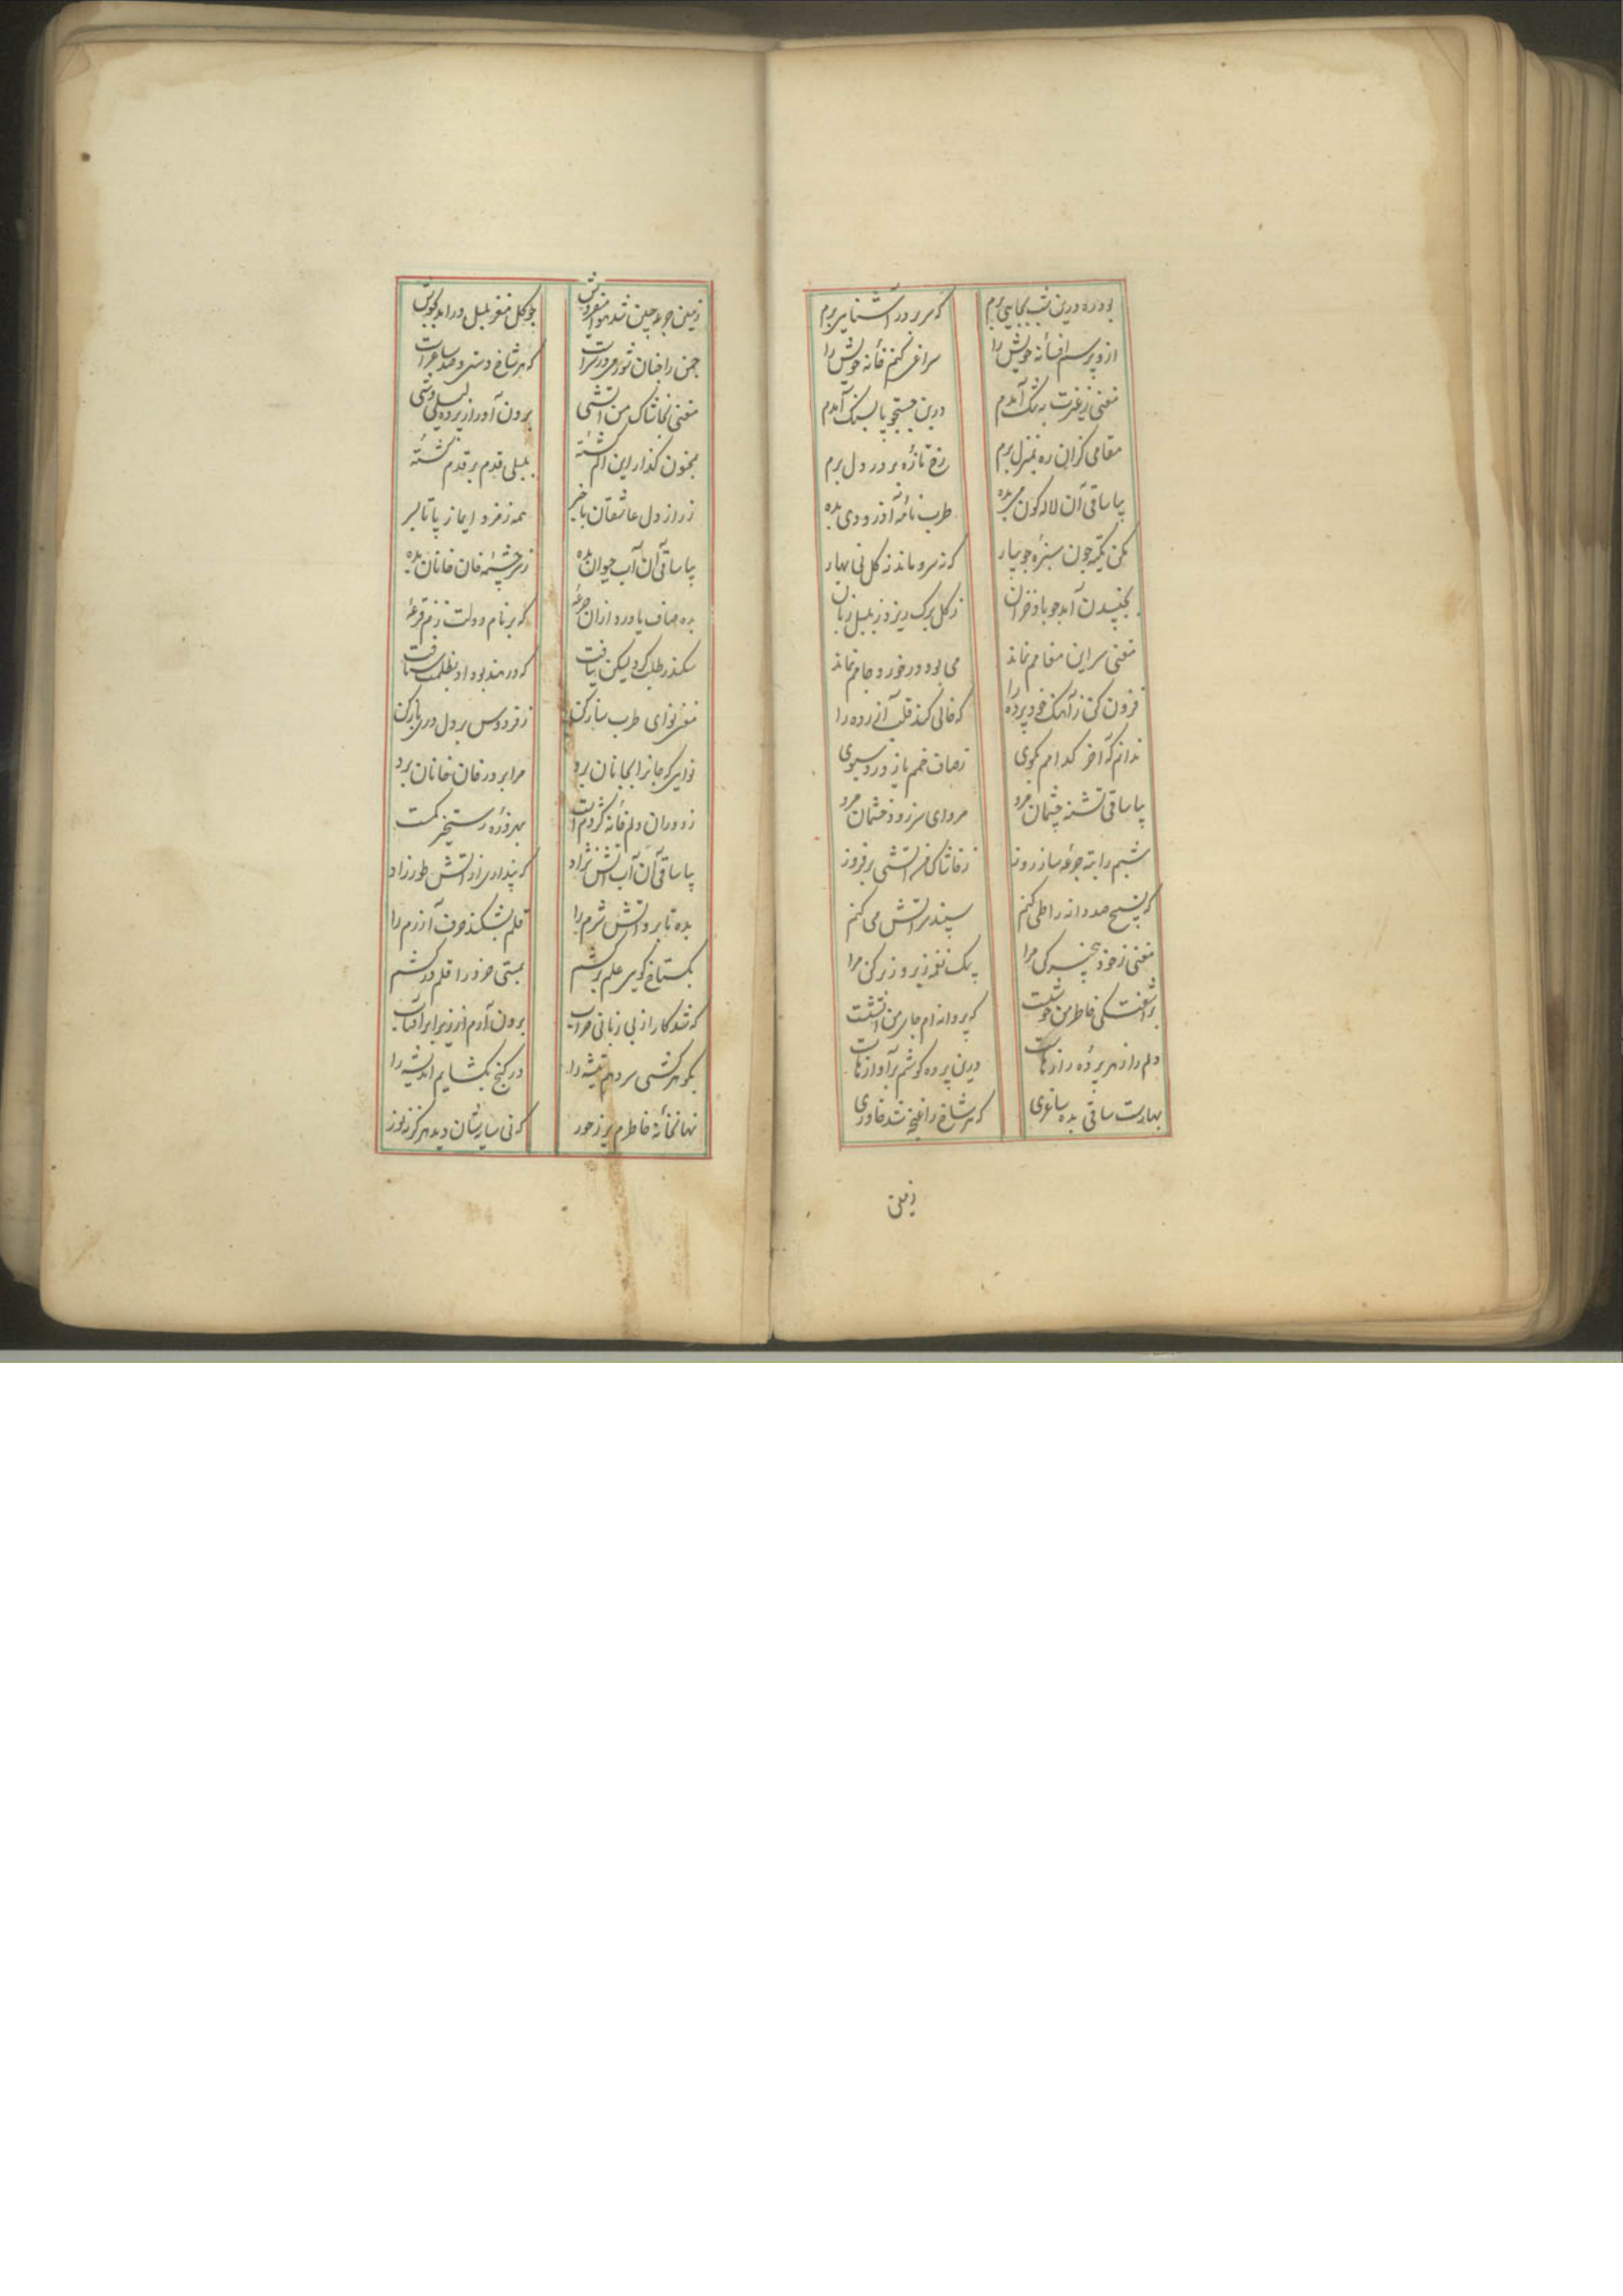 بود ره درین شب بجایی برم که بر در آشنایی برم
ازو پرسم افسانه خویش را سراغی کنم خانه خویش را
مغنی ز غربت به تنگ آمدم درین جستجو پا بسنگ آمدم
مقامی کزان ره بمنزل برم رخ تازه بر در دل برم
بیا ساقی آن لاله کون می بده طرب نامه آذر و دی بده
مکن تکیه چون سبزه جویبار که نه سرو ماند نه کل نی بهار
بجنبیدن آید چو باد خزان ز کل برک ریزد ز بلبل زبان
مغنی سر این مقامم نماند می بود در خورد جامم نماند
فزون کن ز آهنک خود پرده را که خالی کند قلب
ندانم که آخر کدامم بکوی ز صاف خمم یا ز درد سبوی
بیا ساقی تشنه چشمان مرو مرو ای سر زود خشمان مرو
شبم را به ته جرعه ساز روز ز خاشاک من آتشی برفروز
که تسبیح صد دانه را طی کنم سپند سر آتش می کنم
مغنی ز خود بیخبر کن مرا به یک نغمه زیر و زبر کن مرا
بر آشفتگی خاطر من خوشست که پروانه ام جای من آتشست
دلم را ز هر پرده رازهاست درین پرده کوشم بر آوازهاست
بهارست ساقی بده ساغری که هر شاخ را غنچه شد خاوری
زمین جرعه چین شد هوا میفروش چو کل مغز بلبل در آمد بجوش
چمن را چنان شور می در سرست که هر شاخ دستی و صد ساغرست
مغنی بخاشاک من آتشی برون آور از پرده لیلی وشی
بمجنون کذار این الم کشته بلیلی قدم بر قدم کشته
ز راز دل عاشقان با خبر همه زمزم و ایما ز پا تا بسر
بیا ساقی آن آب حیوان بده ز سرچشمه خان خانان بده
بده صاف یا درد ازان جرعه که بر نام دولت زنم قرعه
سکندر طلب کرد لیکن نیافت که در هند بود او بظلمت شتافت
مغنی نوای طرب ساز کن ز فردوس بر دل دری باز کن
نوایی که جانرا بجانان برد مرا بر در خان خانان برد
ز دوران دلم خانه کژدم است بهر ذره رستخیز کمست
بیا ساقی آن آب آتش نژاد که پنداری از آتش طور زاد
بده تا برد آتش شرم را قلم بشکند حرف آزرم را
بکستاخ کویی علم برکشم بمستی خرد را قلم درکشم
که شد کار از بی زبانی خراب برون آرم از زیر ابر آفتاب
بکوهرکشی سر دهم تیشه را در کنج بکشایم اندیشه را
نهانخانه خاطرم پر ز حور که نی سایه شان دیده هرکز نه نور